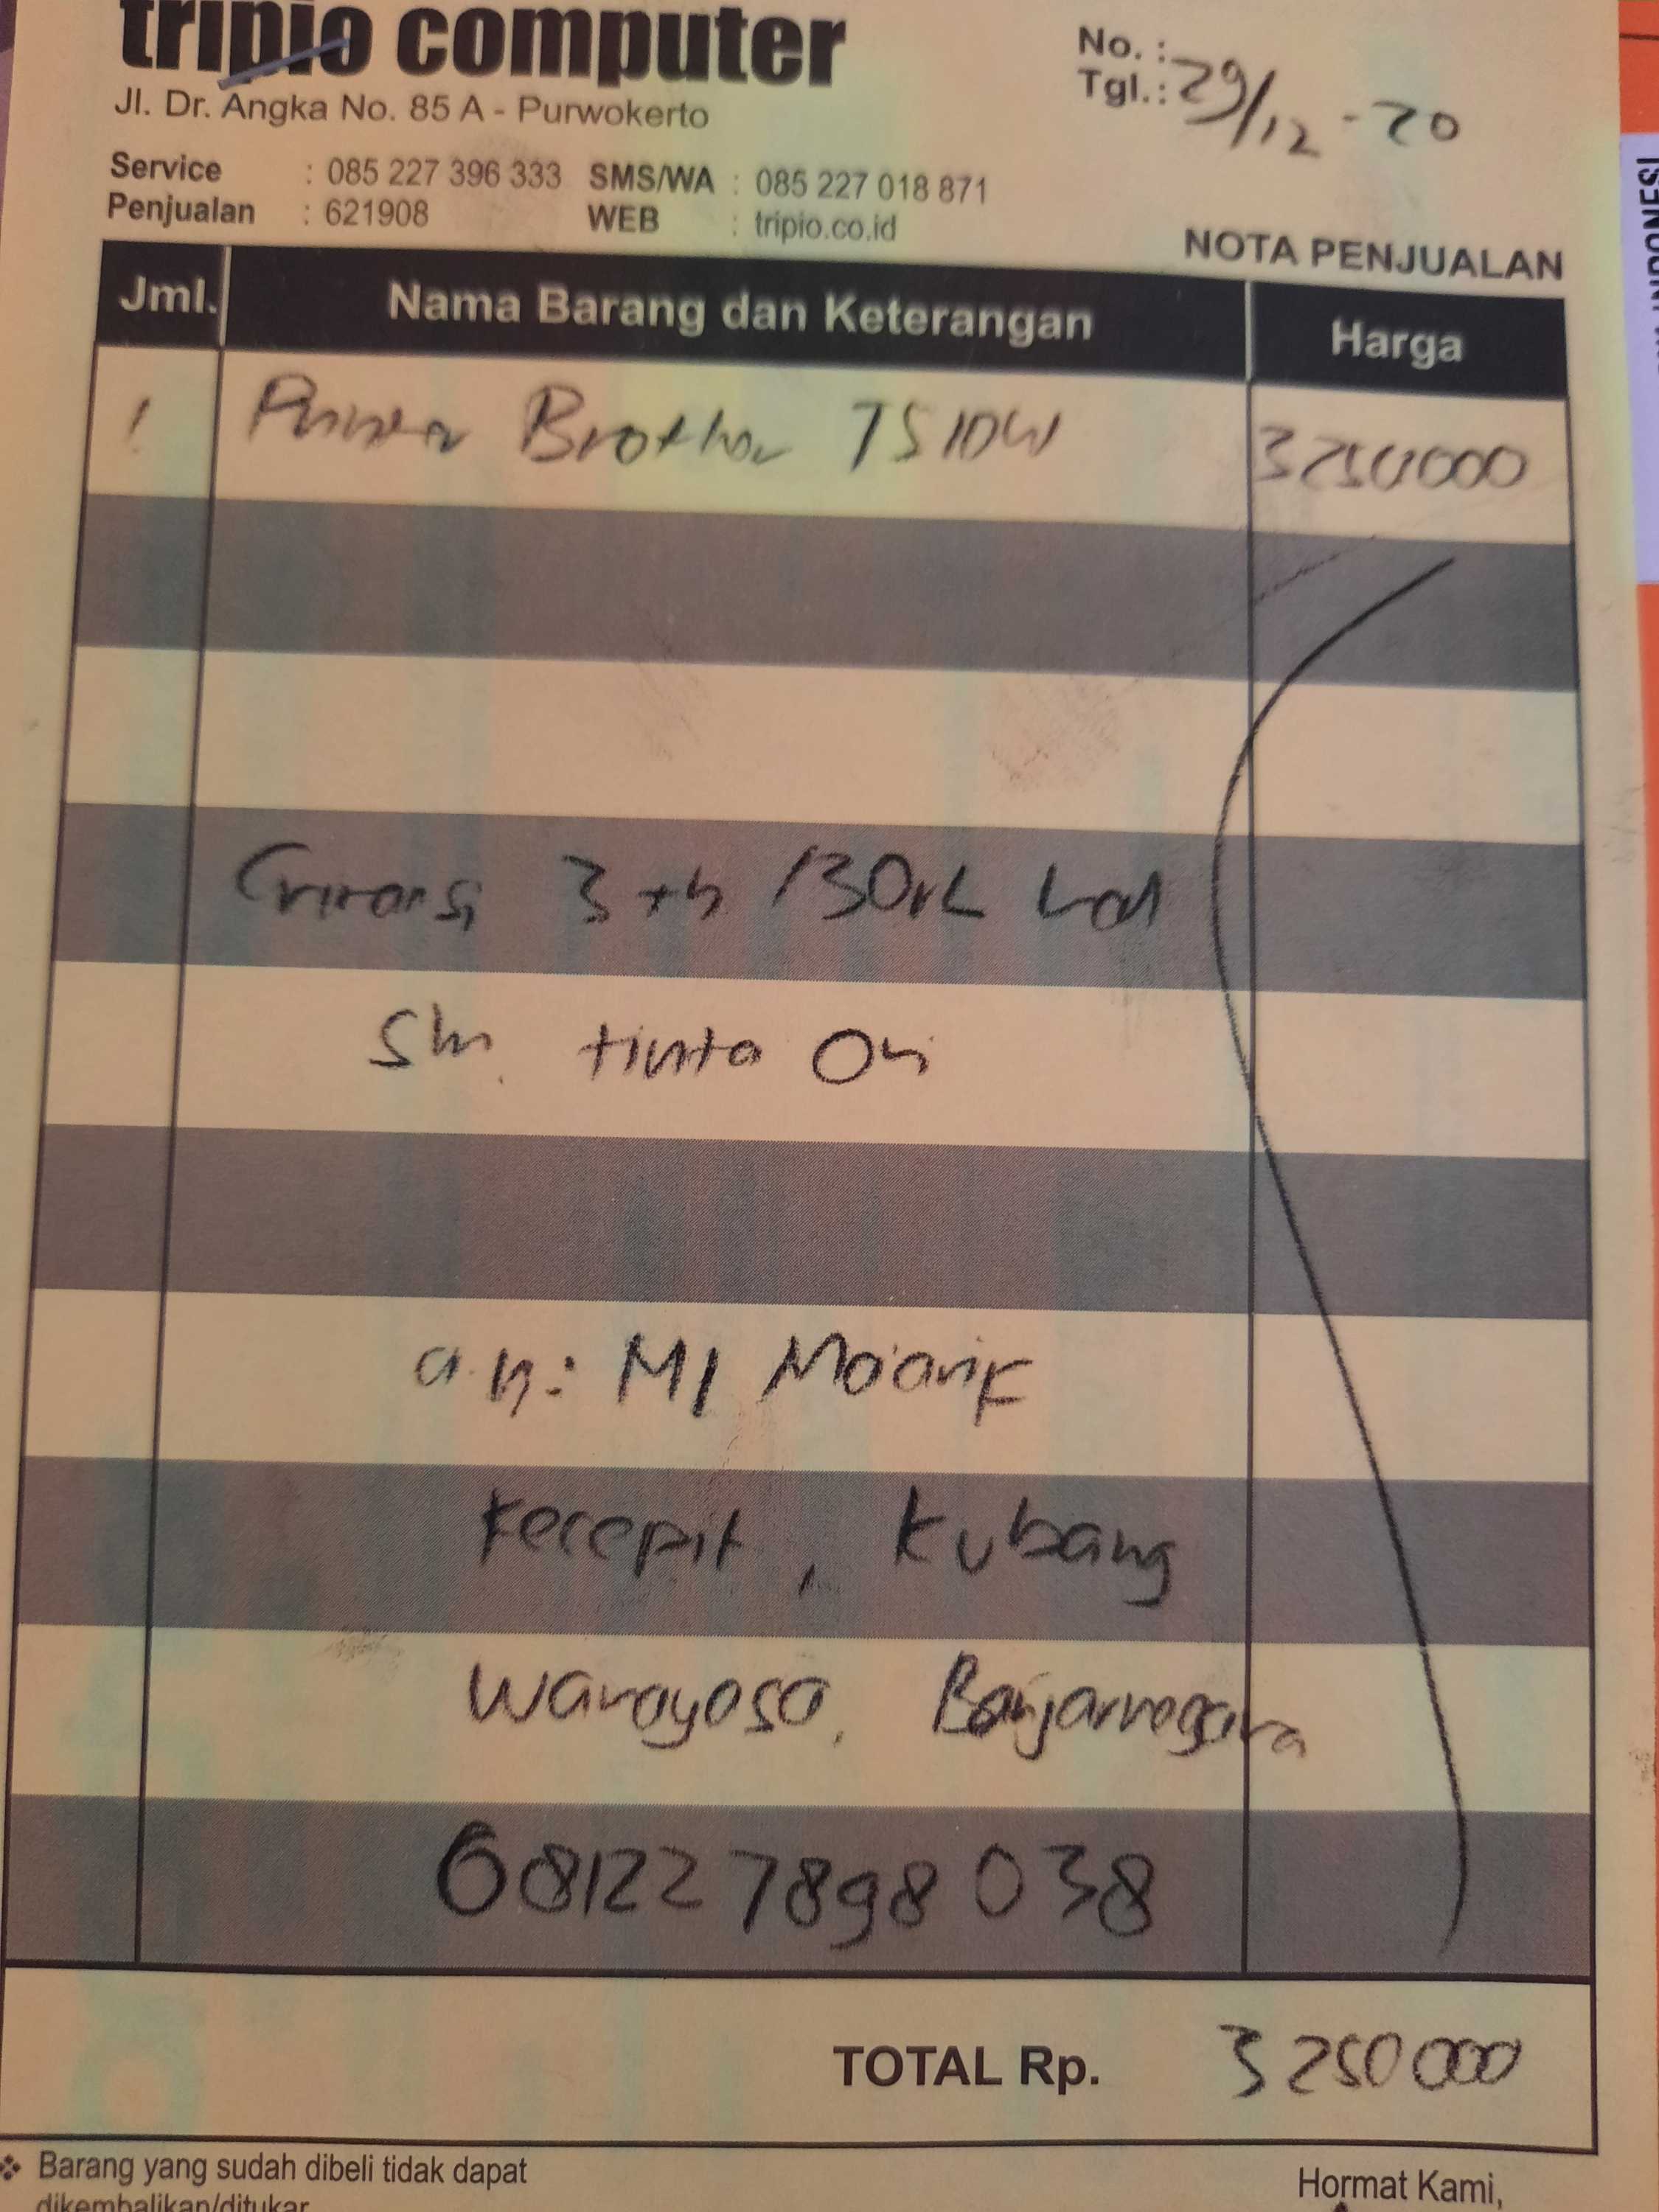 tripio computer
Jl. Dr. Angka No. 85 A - Purwokerto
No. :
Tgl. : 29/12 - 20
Service : 085 227 396 333 SMS/WA : 085 227 018 871
Penjualan : 621908 WEB : tripio.co.id
NOTA PENJUALAN
Jml. Nama Barang dan Keterangan Harga
1 Printer Brother T510W 3250000
Garansi 3 th / 30rb
Slm. tinta Ori
a.n: MI Ma'arif
Kecepit, Kubang
Wanayasa, Banjarnegara
081227898038
TOTAL Rp. 3250000
❖ Barang yang sudah dibeli tidak dapat
dikembalikan/ditukar
Hormat Kami,